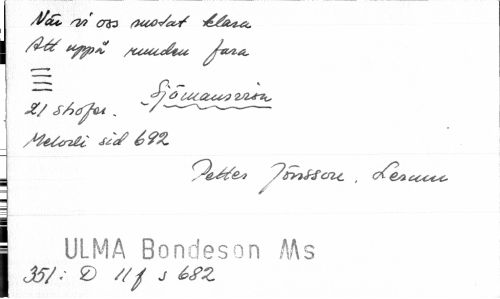 När vi oss modat klara
Att uppå runden fara
Sjömansvisa
21 strofer.
Melodi sid 692
Petter Jönsson, Lerum
ULMA Bondeson Ms
351: D 11 f s 682